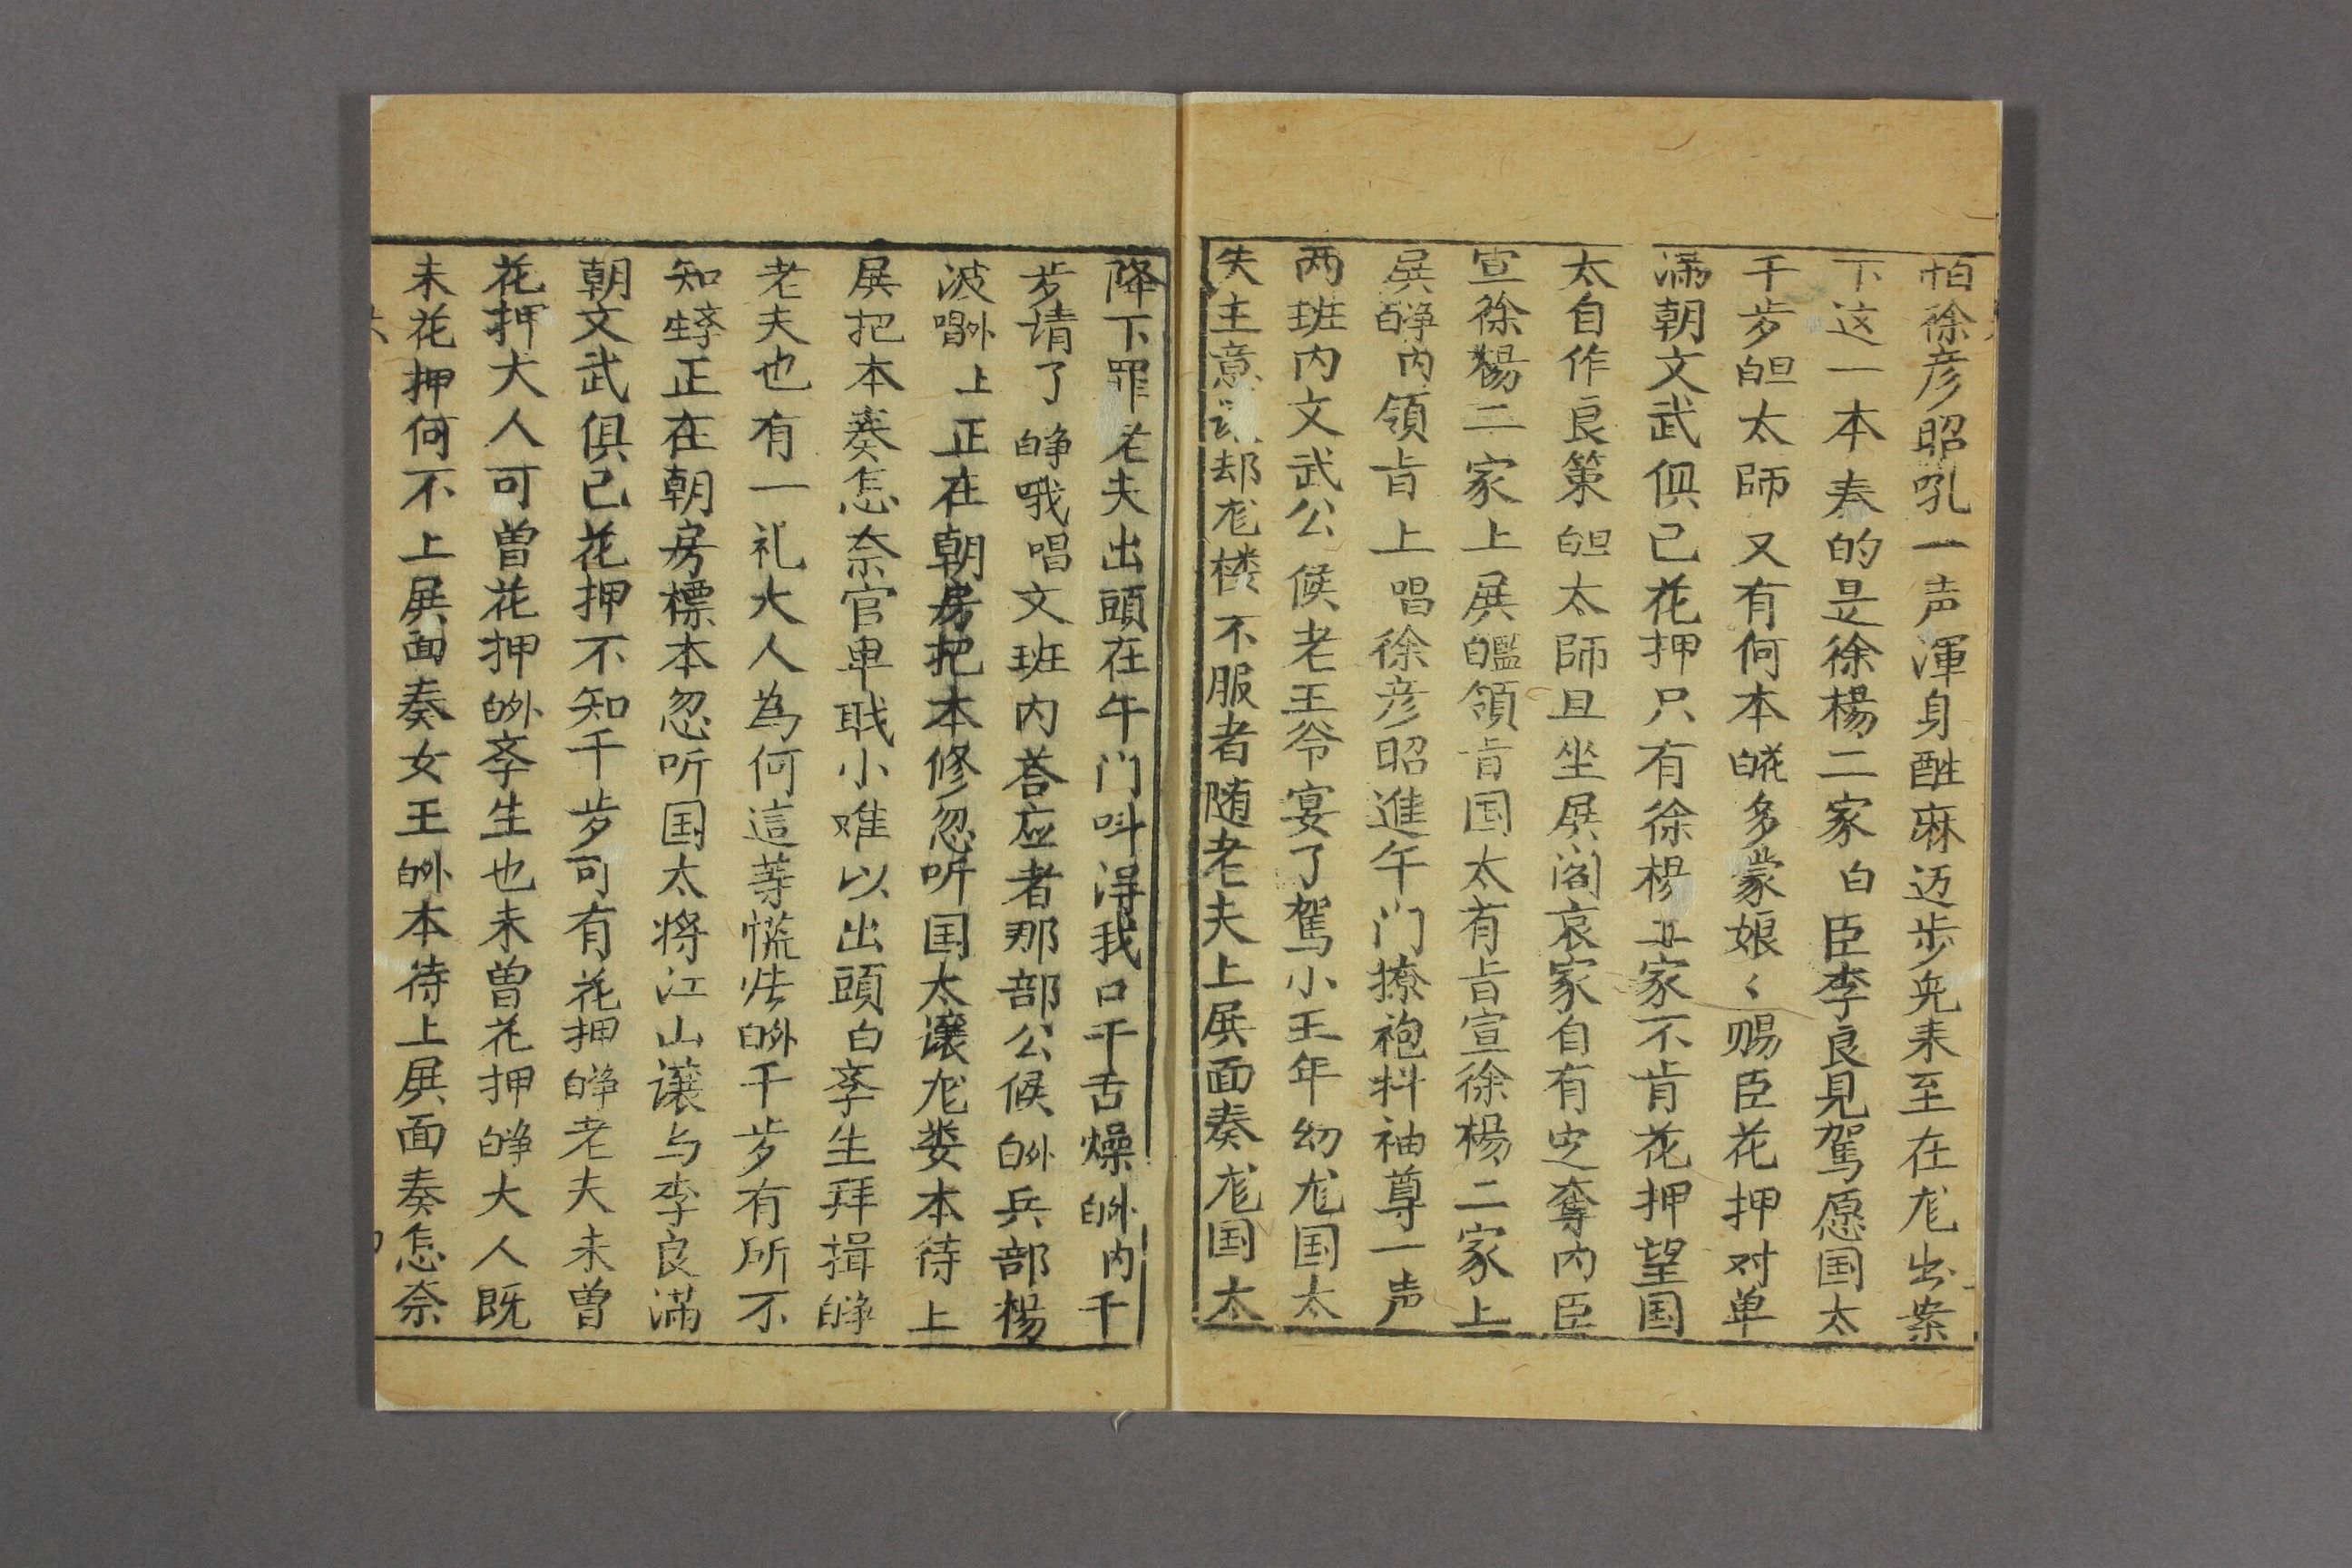 怕徐彦昭吼一声渾身酥麻迈步兒来至在尨出案
下这一本奏的是徐楊二家白臣李良見駕愿国太
千岁白旦太師又有何本白花多蒙娘〻赐臣花押对单
满朝文武俱已花押只有徐楊二家不肯花押望国
太自作良策白旦太師且坐展阁哀家自有定奪内臣
宣徐楊二家上展白監領旨国太有旨宣徐楊二家上
展白净内領旨上唱徐彦昭進午门撩袍抖袖尊一声
两班内文武公候老王爷宴了駕小王年幼尨国太
失主意让却尨楼不服者随老夫上展面奏尨国太
降下罪老夫出頭在午门呌得我口干舌燥白外内千
岁请了白净哦唱文班内荅应者那部公候白外兵部楊
波唱外上正在朝房把本修忽听国太讓尨娄本待上
展把本奏怎奈官卑戢小难以出頭白孝生拜揖白净
老夫也有一礼大人為何這等慌怯白外千岁有所不
知孝生正在朝房標本忽听国太将江山讓与李良满
朝文武俱已花押不知千岁可有花押白净老夫未曾
花押大人可曾花押白外孝生也未曾花押白净大人既
未花押何不上展面奏女王白外本待上展面奏怎奈